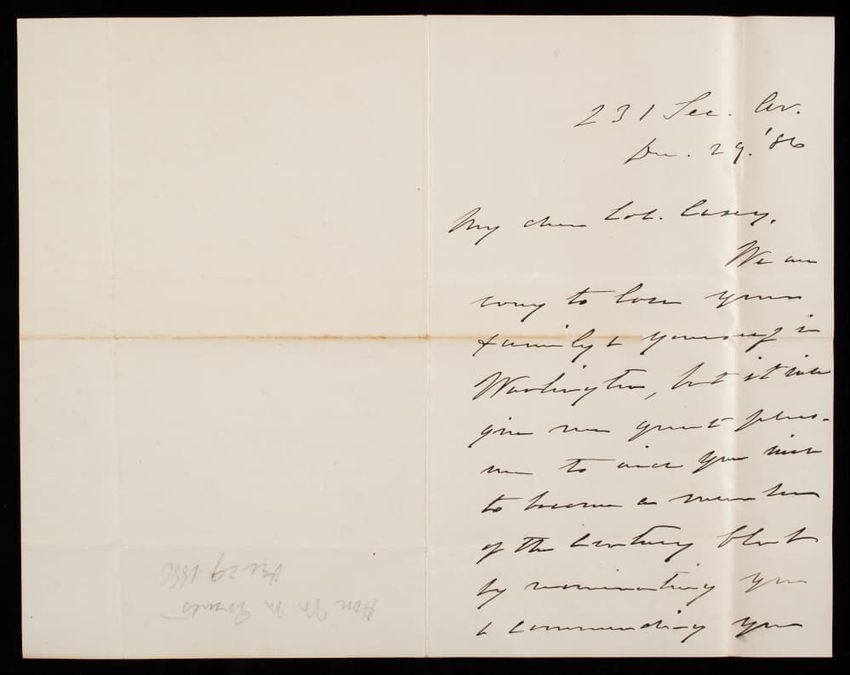 231 Sec. Av.
Dec. 29. '86
My dear Col. Casey,
We are
sorry to lose your
family & yourself in
Washington, but it will
give me great pleas-
ure to aid your wish
to become a member
of the Century Club
by nominating you
& commending you
Hon Wm M Evarts
Dec 29 1886